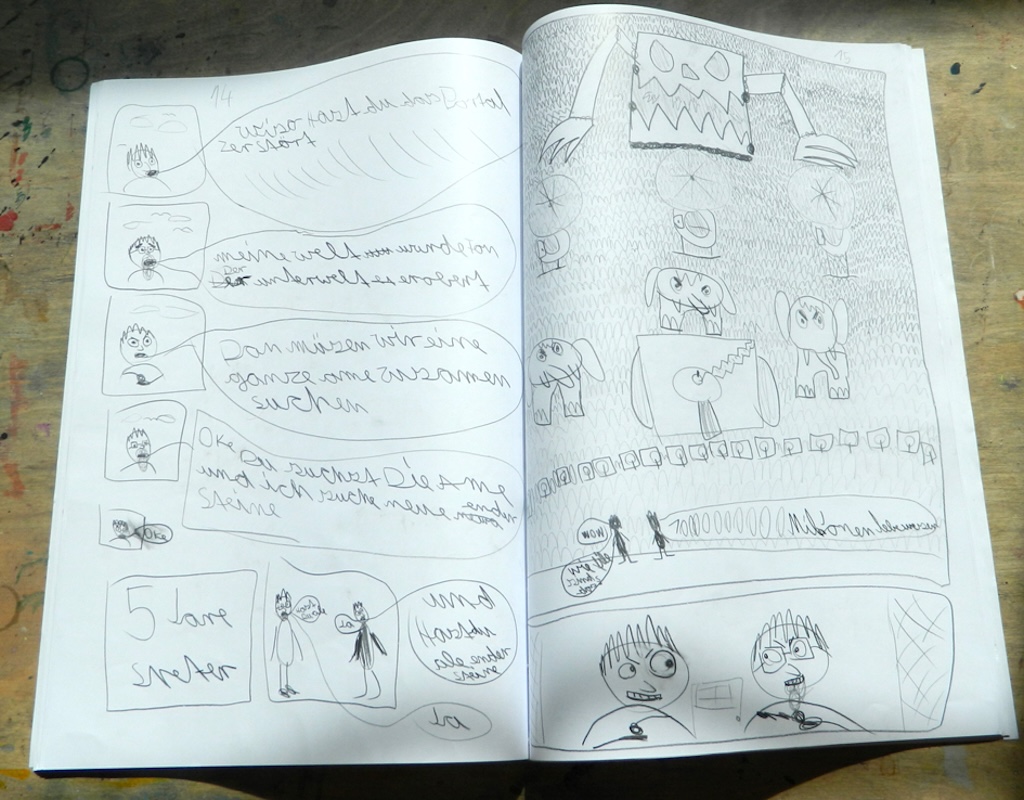 14
wiso Hast du das Portal
zerstört
meine welt wurde fon
Der unterwelt eserobert
Dan müzen wir eine
ganze ame zusamen
suchen
Oke
Du suchst Die ame
und ich suche neue ender
Steine
Oke
5 Jare
sreter
hast
du ale
Ja
bnu
Hast du
ale ender
steine
ja
15
WOW
wie file
sind
das
1000000000 Milionen lebewesen